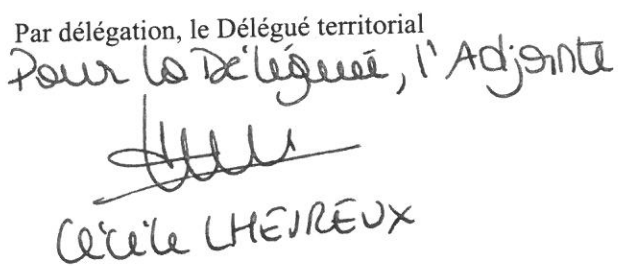 Par délégation, le Délégué territorial
Pour la Déléguée, l'Adjointe
Cécile LHEUREUX